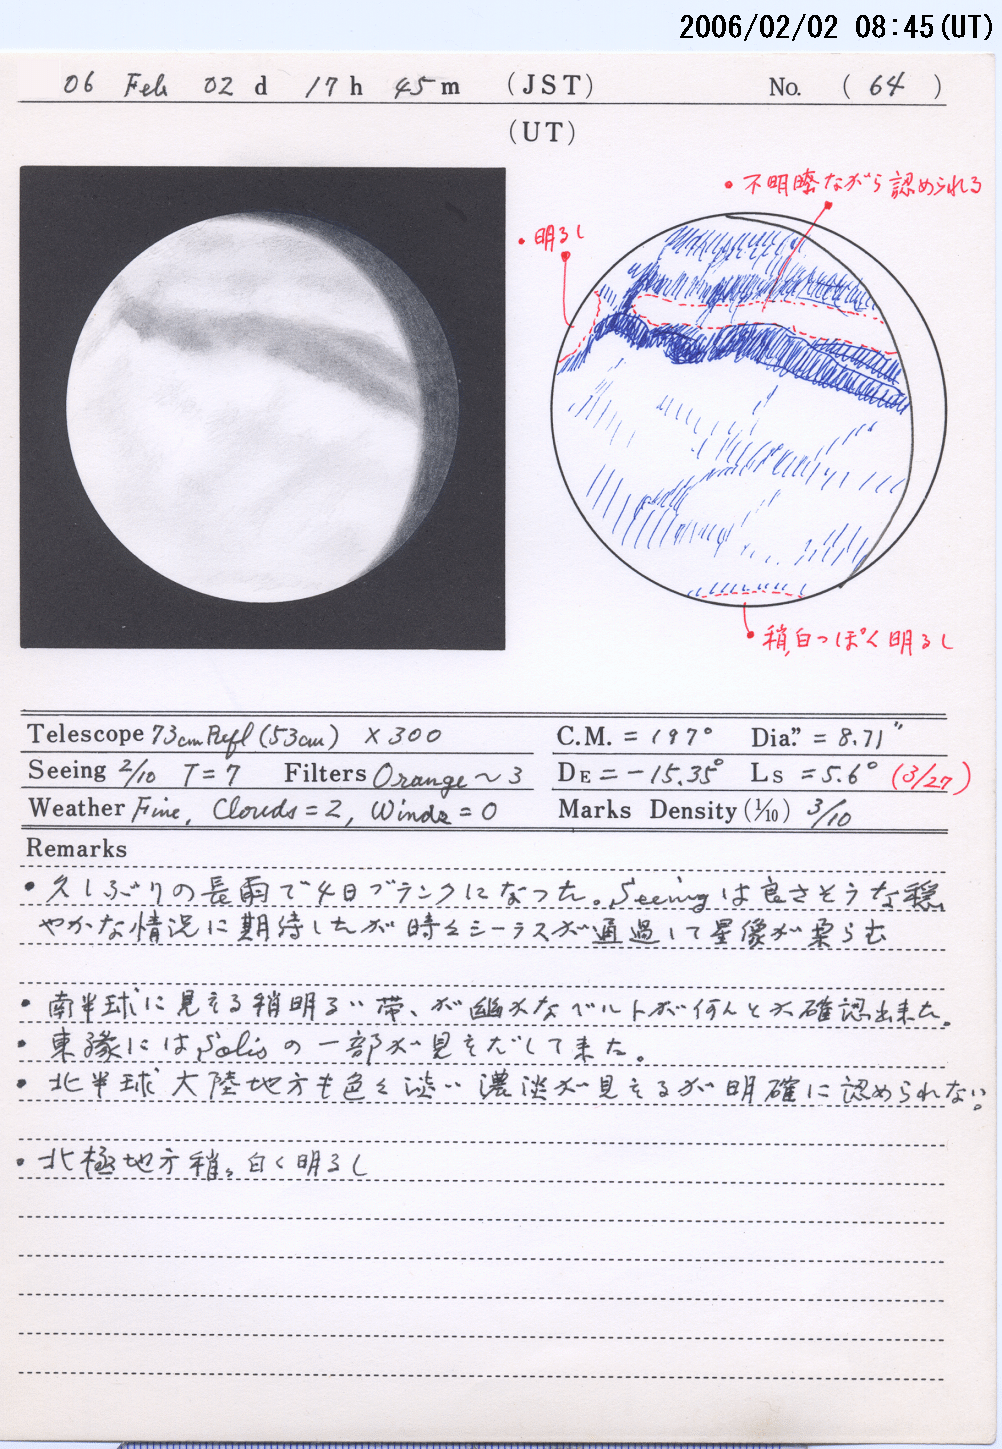 2006/02/02 08:45(UT)
06 Feb 02 d 17 h 45 m (JST) No. ( 64 )
(UT)
• 不明瞭ながら認められる
• 明るし
• 稍々白っぽく明るし
Telescope 73cm Refl (53cm) × 300
C.M. = 197° Dia." = 8.71"
Seeing 2/10 T = 7 Filters Orange ~ 3
DE = -15.35° Ls = 5.6° (3/27)
Weather Fine, Clouds = 2, Winds = 0
Marks Density (1/10) 3/10
Remarks
• 久しぶりの長雨で4日ブランクになった。Seeingは良さそうな穏
やかな情況に期待したが時々シーラスが通過して星像が柔らむ
• 南半球に見える稍明るい帯、が幽かなベルトが何んとか確認出来た。
• 東縁にはSolisの一部が見えだして来た。
• 北半球大陸地方も色々淡い濃淡が見えるが明確に認められない。
• 北極地方稍々白く明るし